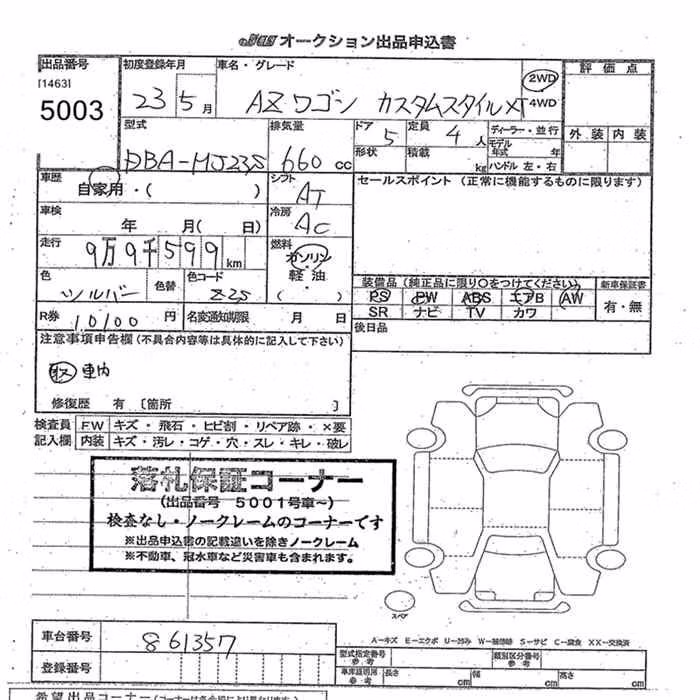 オークション出品申込書
出品番号
[1463]
5003
初度登録年月
23 5月
車名・グレード
AZワゴン カスタムスタイルXT
2WD
4WD
評価点
外装 内装
型式
DBA-MJ23S
排気量
660cc
ドア
5
形状
定員
4人
積載
kg
ディーラー・並行
モデル年式 年
ハンドル 左・右
車歴
自家用・( )
シフト
AT
セールスポイント(正常に機能するものに限ります)
車検
年 月( 日)
冷房
AC
走行
9万9千599km
燃料
ガソリン
軽油
( ・ )
色
シルバー
色替
色コード
Z2S
装備品(純正品に限り○をつけてください)
新車保証書
PS PW ABS エアB AW
有・無
SR ナビ TV カワ
R券
10100円
名変通知期限 月 日
後日品
注意事項申告欄(不具合内容等は具体的に記入して下さい)
取 車内
修復歴 有 [箇所 ]
検査員
記入欄
F.W キズ・飛石・ヒビ割・リペア跡・×要
内装 キズ・汚レ・コゲ・穴・スレ・キレ・破レ
落札保証コーナー
(出品番号 5001号車~)
検査なし・ノークレームのコーナーです
※出品申込書の記載違いを除きノークレーム
※不動車、冠水車など災害車も含まれます。
スペア
A-キズ E-エクボ U-凹み W-補修跡 S-サビ C-腐食 XX-交換済
車台番号
861357
登録番号
型式指定番号
参考
類別区分番号
参考
車庫証明用
参考
長さ cm
幅 cm
高さ cm
希望出品コーナー